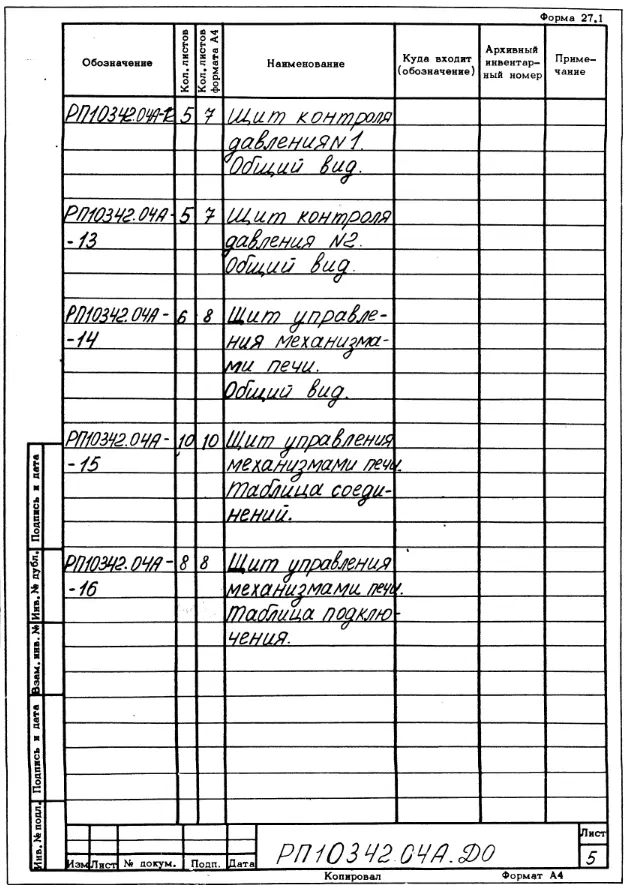 Форма 27.1
Обозначение
Кол. листов
Кол. листов формата А4
Наименование
Куда входит (обозначение)
Архивный инвентар-ный номер
Приме-чание
РП10342.04А-12 5 7 Щит контроля
давления N1.
Общий вид.
РП10342.04А- 5 7 Щит контроля
-13 давления N2.
Общий вид.
РП10342.04А- 6 8 Щит управле-
-14 ния механизма-
ми печи.
Общий вид.
РП10342.04А- 10 10 Щит управления
-15 механизмами печи.
Таблица соеди-
нений.
РП10342.04А- 8 8 Щит управления
-16 механизмами печи.
Таблица подклю-
чения.
Подпись и дата
Инв. № дубл.
Взам. инв. №
Подпись и дата
Инв. № подл.
Изм Лист № докум. Подп. Дата
РП10342.04А.ДО
Лист
5
Копировал Формат А4